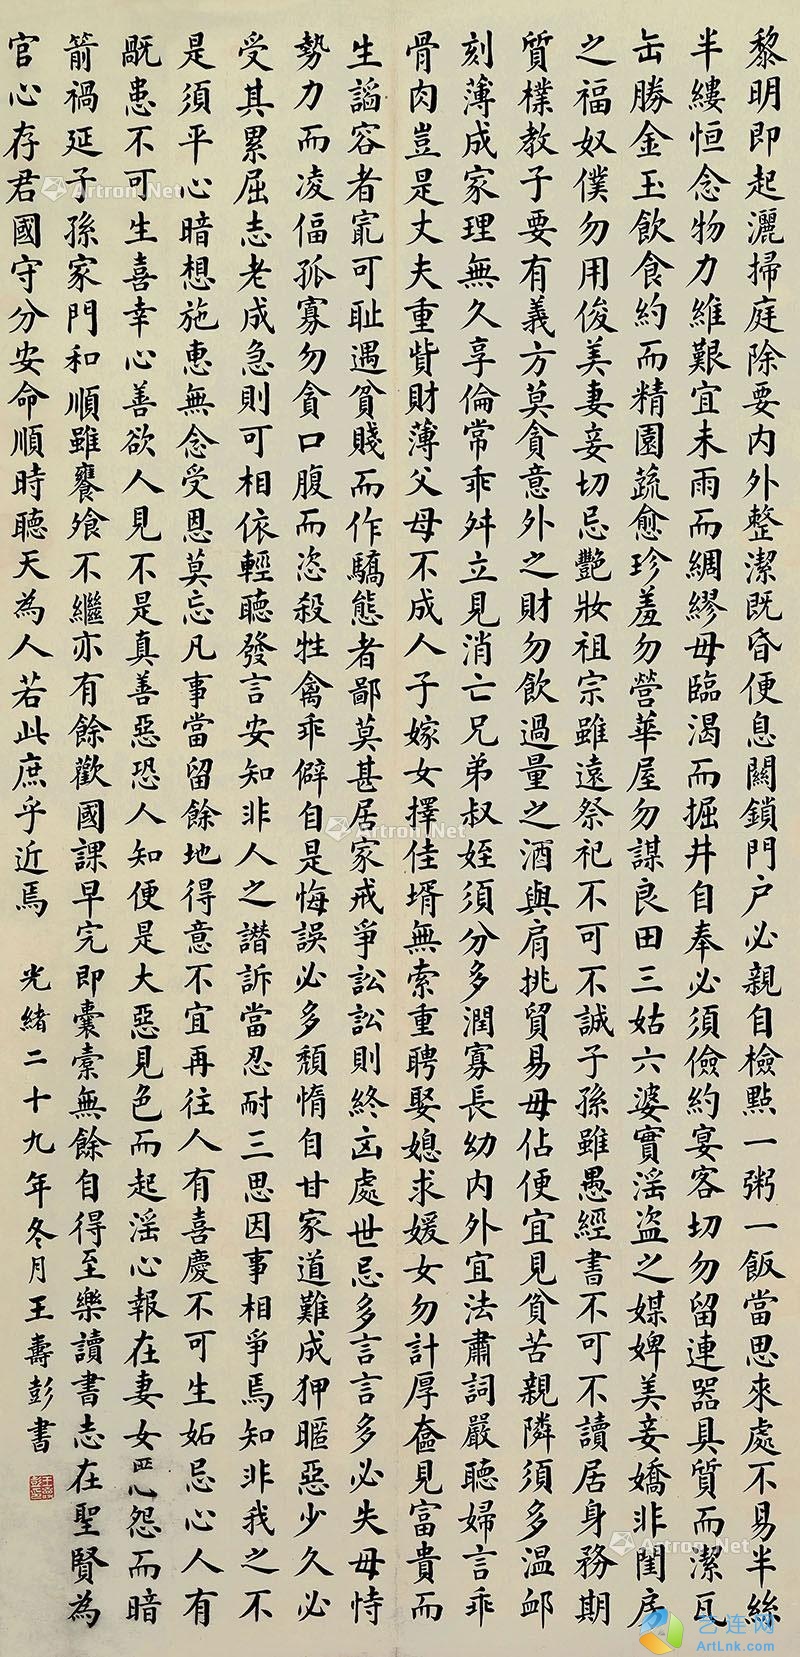 黎明即起灑掃庭除要內外整潔既昏便息關鎖門戶必親自檢點一粥一飯當思來處不易半絲
半縷恒念物力維艱宜未雨而綢繆毋臨渴而掘井自奉必須儉約宴客切勿留連器具質而潔瓦
缶勝金玉飲食約而精園蔬愈珍羞勿營華屋勿謀良田三姑六婆實淫盜之媒婢美妾嬌非閨房
之福奴僕勿用俊美妻妾切忌艷妝祖宗雖遠祭祀不可不誠子孫雖愚經書不可不讀居身務期
質樸教子要有義方莫貪意外之財勿飲過量之酒與肩挑貿易毋佔便宜見貧苦親隣須多溫卹
刻薄成家理無久享倫常乖舛立見消亡兄弟叔姪須分多潤寡長幼內外宜法肅詞嚴聽婦言乖
骨肉豈是丈夫重貲財薄父母不成人子嫁女擇佳壻無索重聘娶媳求媛女勿計厚奩見富貴而
生謟容者寔可耻遇貧賤而作驕態者鄙莫甚居家戒爭訟訟則終凶處世忌多言言多必失毋恃
勢力而凌偪孤寡勿貪口腹而恣殺牲禽乖僻自是悔誤必多頹惰自甘家道難成狎暱惡少久必
受其累屈志老成急則可相依輕聽發言安知非人之譖訴當忍耐三思因事相爭焉知非我之不
是須平心暗想施惠無念受恩莫忘凡事當留餘地得意不宜再往人有喜慶不可生妬忌心人有
禍患不可生喜幸心善欲人見不是真善惡恐人知便是大惡見色而起淫心報在妻女匿怨而暗
箭禍延子孫家門和順雖饔飧不繼亦有餘歡國課早完即囊橐無餘自得至樂讀書志在聖賢為
官心存君國守分安命順時聽天為人若此庶乎近焉 光緒二十九年冬月王壽彭書
Artron.Net
Artron.Net
Artron.Net
艺连网
ArtLnk.com